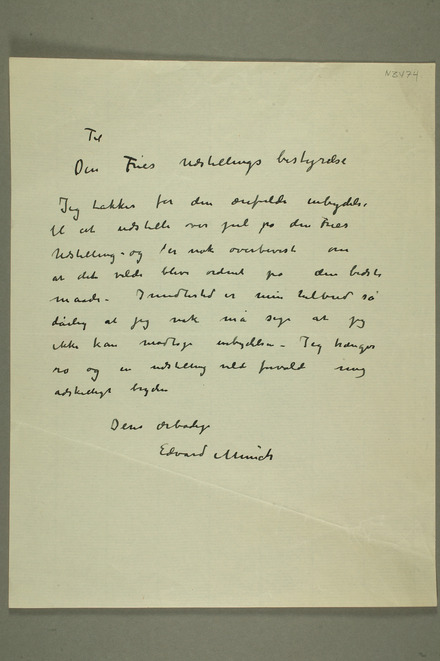 N2474
Til
Den Fries Udstillings bestyrelse
Jeg takker for den ærefulde indbydelse
til at udstille over jul på den Fries
Udstilling - og er nok overbevist om
at det vilde blive ordnet på den bedste
maade - Imidlertid er min tilstand så
dårlig at jeg nok må sige at jeg
ikke kan modtage indbydelsen - Jeg trænger
ro og en udstilling vild forvolde mig
adskilligt bryderi
Deres ærbødige
Edvard Munch